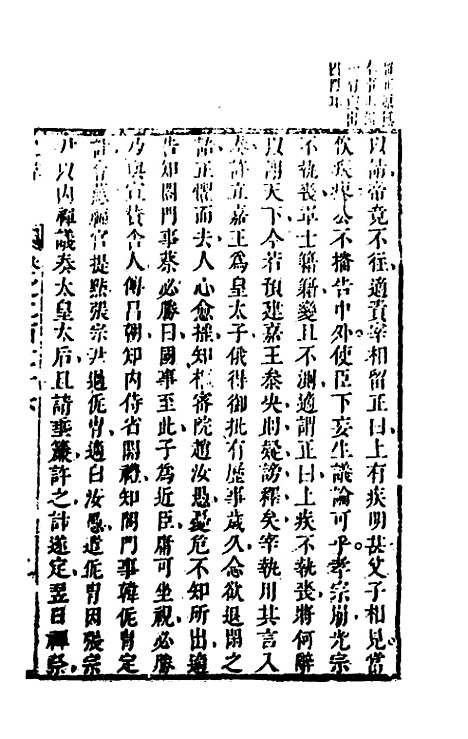 以請帝竟不往適責宰相留正曰上有疾明甚父子相見當
俟疾瘳公不播告中外使臣下妄生議論可乎孝宗崩光宗
不執喪軍士籍籍變且不測適謂正曰上疾不執喪將何辭
以謝天下今若預建嘉王參決則疑謗釋矣宰執用其言入
奏許立嘉王為皇太子俄得御批有歷事歲久念欲退閑之
語正懼而去人心愈搖知樞密院趙汝愚憂危不知所出適
告知閤門事蔡必勝曰國事至此子為近臣庸可坐視必勝
乃與宣贊舍人傅昌朝知内侍省關禮知閤門事韓侂胄定
計會慈福宮提點張宗尹過侂胄適白汝愚遣侂胄因張宗
尹以内禪議奏太皇太后且請垂簾許之計遂定翌日禪祭